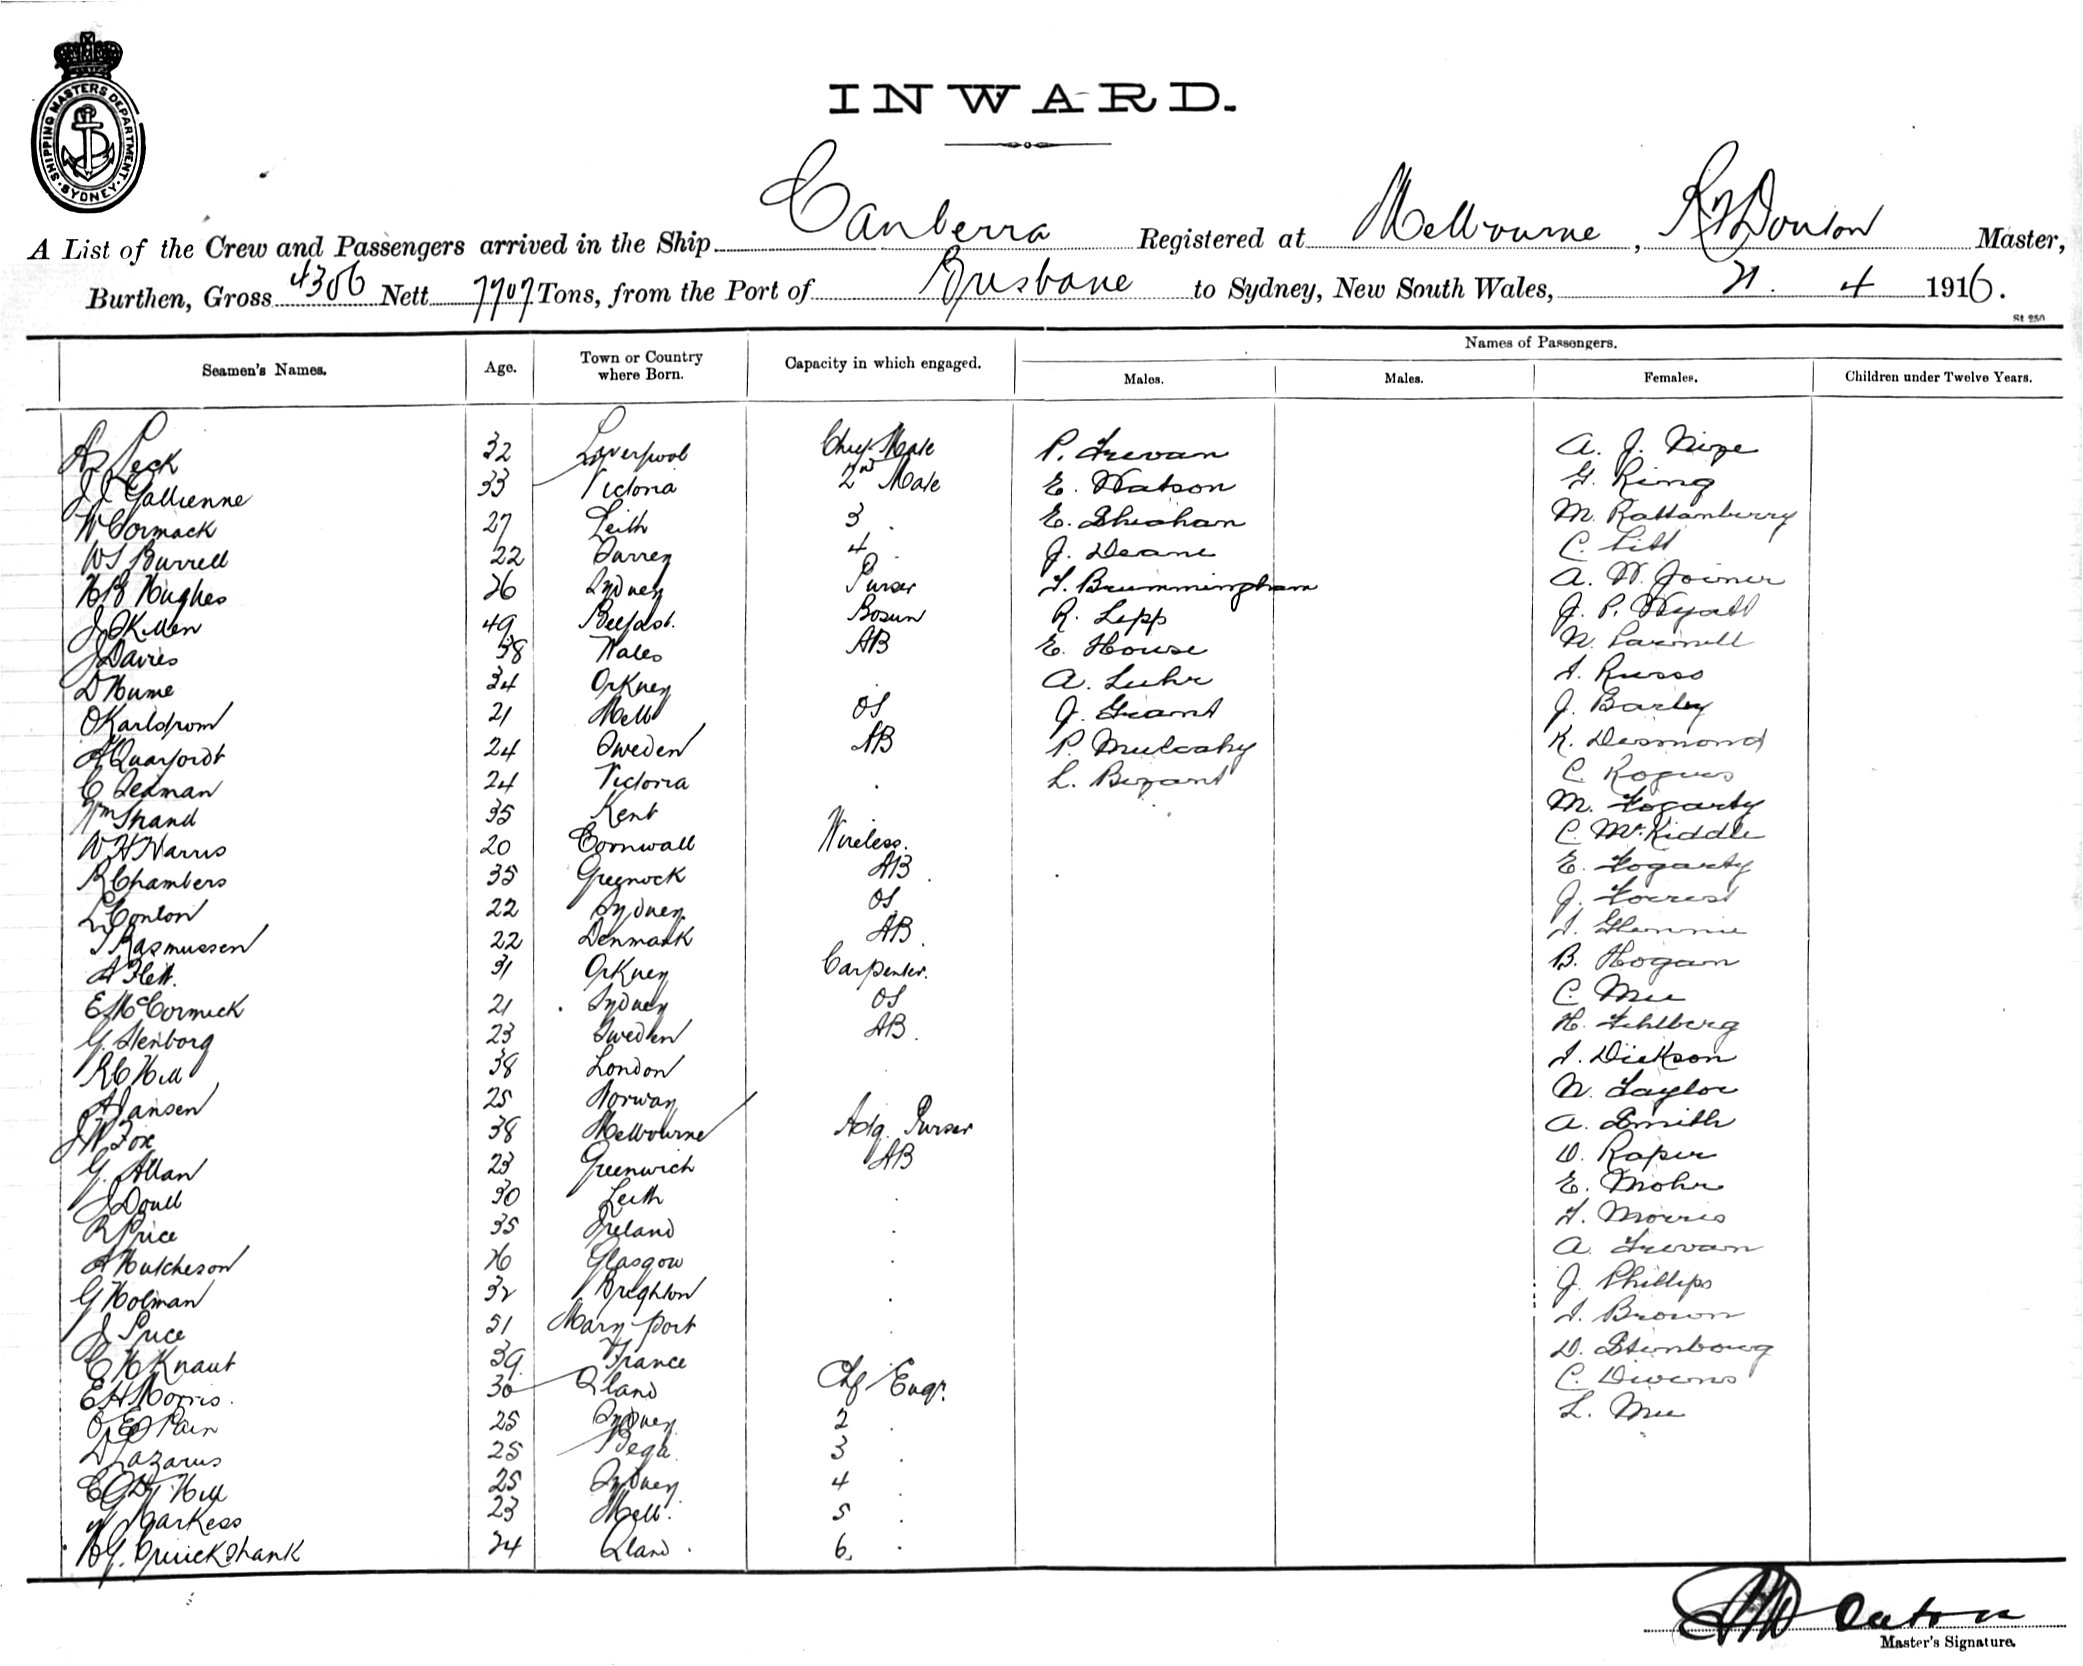 SHIPPING MASTERS DEPARTMENT. SYDNEY
INWARD.
A List of the Crew and Passengers arrived in the Ship Canberra Registered at Melbourne, Master,
Burthen, Gross 4306 Nett 7707 Tons, from the Port of Brisbane to Sydney, New South Wales, 21. 4 1916.
St 250
Seamen's Names. Age. Town or Country where Born. Capacity in which engaged. Names of Passengers.
Males. Males. Females. Children under Twelve Years.
Peck 32 Liverpool Chief Mate P. Trevan A. J. Nize
J Gallienne 33 Victoria 2nd Mate E. Watson G. Ring
W Cormack 27 Leith 3 E. Sheahan M. Rattanberry
W S Burrell 22 Surrey 4 J. Deane C. Litt
H B Hughes 26 Sydney Purser Brummingham A. W. Joiner
J Killen 49 Belfast. Bosun R. Lepp J. P. Wyatt
J Davies 38 Wales AB E. House N. Parnell
D Hume 34 Orkney A. Luhr Russo
O Karlstrom 21 Melb OS J. Grant J. Barley
A Quarfordt 24 Sweden AB P. Mulcahy K. Desmond
C Seaman 24 Victoria L. Bezant C. Rogers
Wm Strand 35 Kent M. Fogarty
W H Harris 20 Cornwall Wireless. C. McKiddle
R Chambers 35 Greenock AB E. Fogarty
L Conlon 22 Sydney OS J. Forrest
Rasmussen 22 Denmark AB Glennie
A Flett. 31 Orkney Carpenter. B. Hogan
E McCormick 21 Sydney OS C. Mee
G. Stenborg 23 Sweden AB H. Fehlberg
R C Hill 38 London Dickson
A Jansen 25 Norway N. Taylor
J W Fox 38 Melbourne Adg. Purser A. Smith
G. Allan 23 Greenwich AB D. Raper
J Doull 30 Leith E. Mohr
R Price 35 Ireland Morris
A Hutcheson 26 Glasgow A. Trevan
G Holman 32 Brighton J. Phillips
J Price 51 Mary port Brown
C H Knaut 39 France D. Steinbourg
E H Morris. 30 Qland Chf Engr. C. Divens
Pain 25 Sydney 2 L. Mee
D Lazarus 25 Bega 3
Hill 25 Sydney 4
Markess 23 Melb. 5
Cruickshank 24 Qland. 6.
Master's Signature.